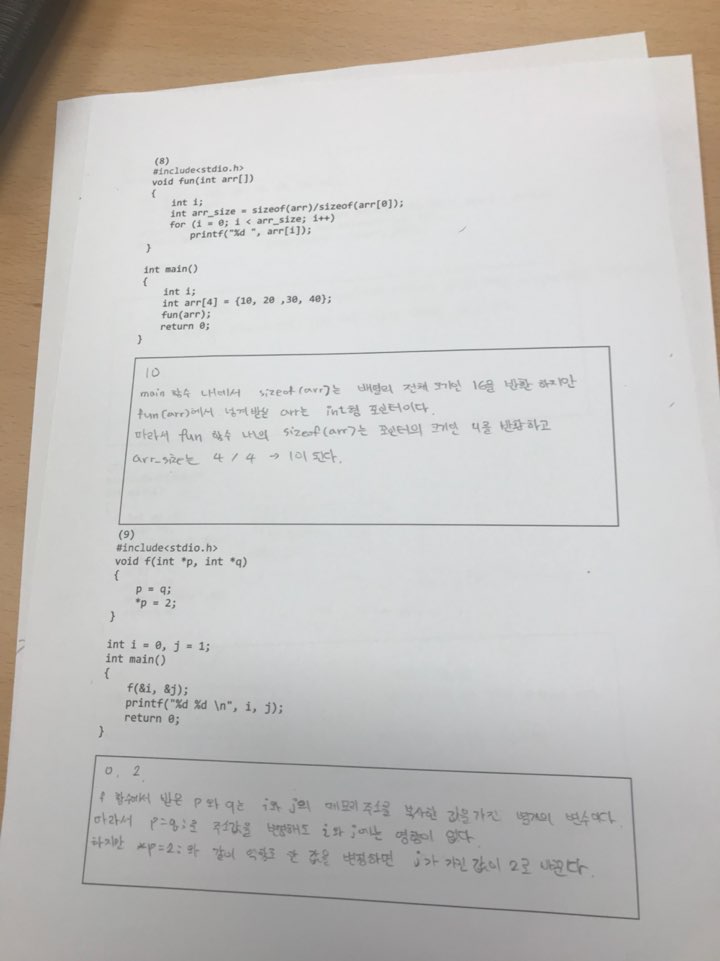 (8)
#include<stdio.h>
void fun(int arr[])
{
int i;
int arr_size = sizeof(arr)/sizeof(arr[0]);
for (i = 0; i < arr_size; i++)
printf("%d ", arr[i]);
}
int main()
{
int i;
int arr[4] = {10, 20 ,30, 40};
fun(arr);
return 0;
}
10
main 함수 내에서 sizeof(arr)는 배열의 전체 크기인 16을 반환 하지만
fun(arr)에서 넘겨받은 arr는 int형 포인터이다.
따라서 fun 함수 내의 sizeof(arr)는 포인터의 크기인 4를 반환하고
arr_size는 4 / 4 → 1이 된다.
(9)
#include<stdio.h>
void f(int *p, int *q)
{
p = q;
*p = 2;
}
int i = 0, j = 1;
int main()
{
f(&i, &j);
printf("%d %d \n", i, j);
return 0;
}
0, 2
f 함수에서 받은 p와 q는 i와 j의 메모리 주소를 복사한 값을 가진 별개의 변수이다.
따라서 p=q;로 주소값을 변경해도 i와 j에는 영향이 없다.
하지만 *p=2;와 같이 한 값을 변경하면 j가 가진 값이 2로 바뀐다.